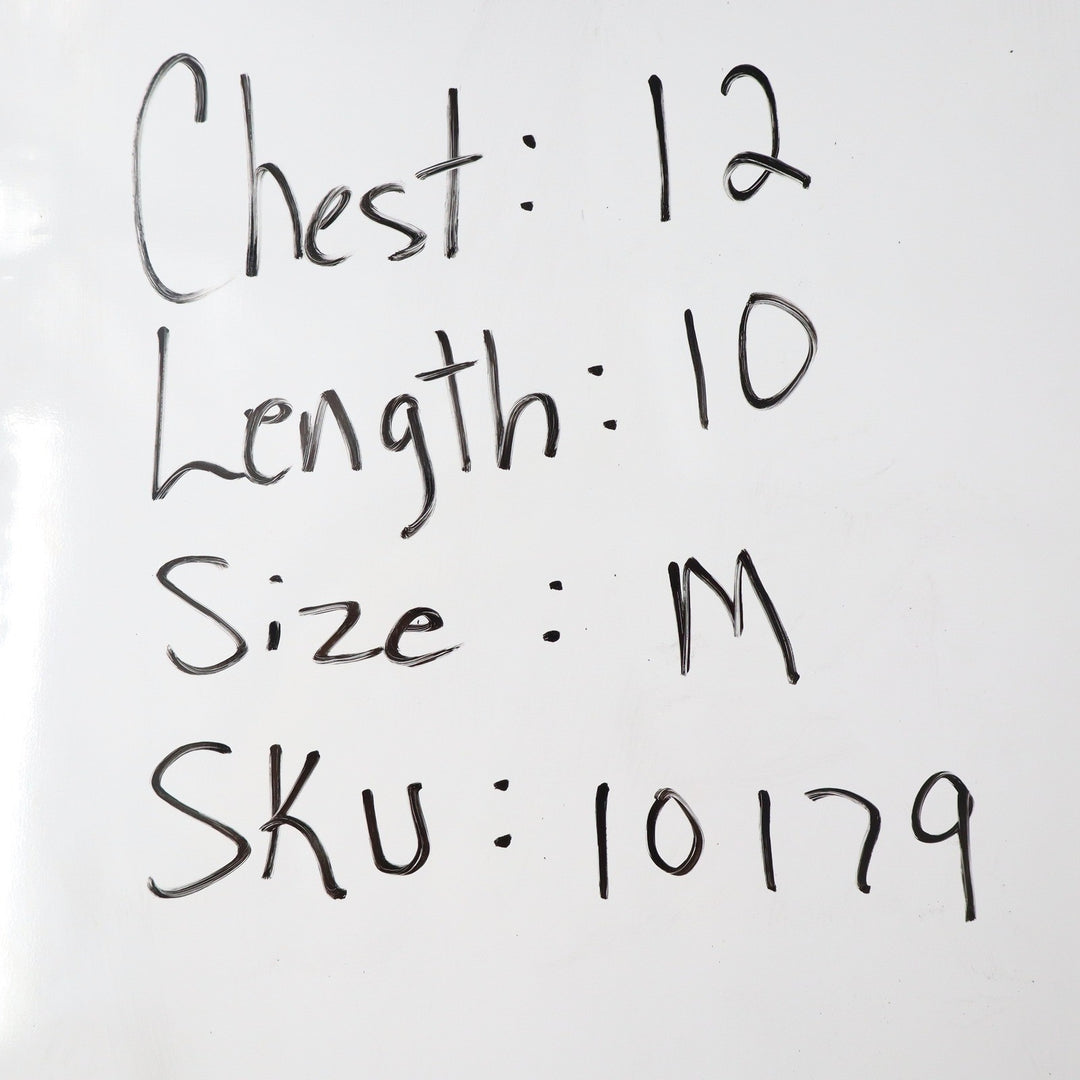 Chest: 12
Length: 10
Size: M
SKU: 10179